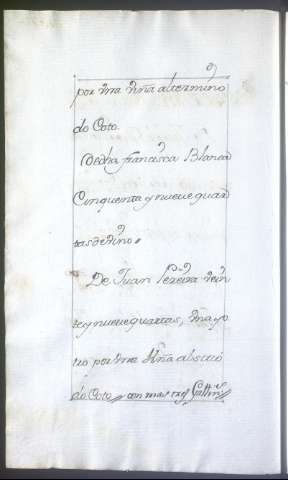 por vnã Viña al termino
do Coto
Dedha francisca Blanca
Cinquenta y nueve quar
tas de vino
De Juan Pereira vein
te y nueve quartas, vna y o
tro por vna Viña al sitio
do Coto con mas tres Gallinˢ